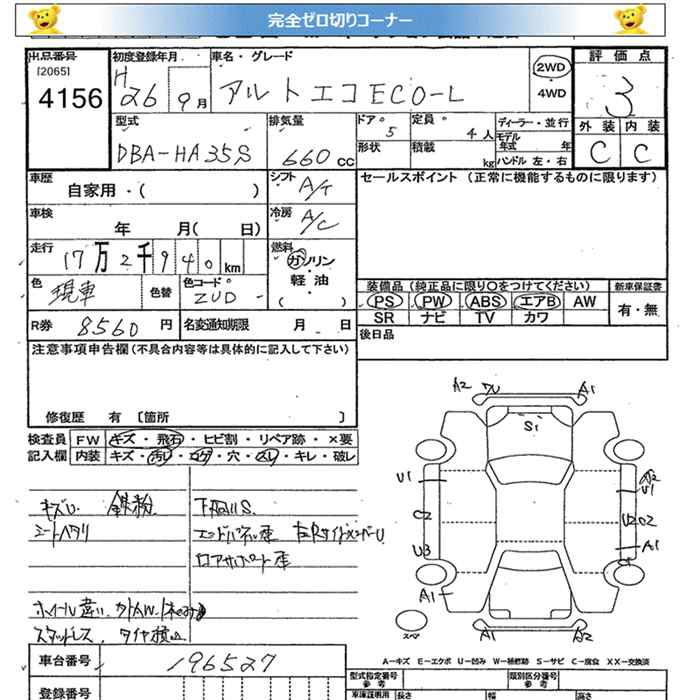 完全ゼロ切りコーナー
出品番号 初度登録年月 車名・グレード 評価点
[2065] H 26 9月 アルトエコECO-L 2WD 3
4156 ・4WD
外装 内装
型式 排気量 ドア 定員 ディーラー・並行
DBA-HA35S 660cc 5 4人 モデル年式 年 C C
形状 積載 kg ハンドル 左・右
車歴 自家用・( ) シフト A/T セールスポイント (正常に機能するものに限ります)
車検 年 月( 日) 冷房 A/C
走行 17万2千940km 燃料 ガソリン・軽油・( )
色 現車 色替 色コード ZUD 装備品 (純正品に限り○をつけてください) 新車保証書
PS PW ABS エアB AW 有・無
SR ナビ TV カワ
R券 8560円 名変通知期限 月 日 後日品
注意事項申告欄(不具合内容等は具体的に記入して下さい)
修復歴 有 [箇所 ]
検査員 FW キズ・飛石・ヒビ割・リペア跡・×要
記入欄 内装 キズ・汚レ・コゲ・穴・スレ・キレ・破レ
A2 A1
S1
U1 U1
C2 U2 C2
U3 A1
A1
A1 A2
キズU 鉄粉 下廻りS
シートヘタリ
ホイール違い
スタッドレス タイヤ積込
スペア
A-キズ E-エクボ U-凹み W-補修跡 S-サビ C-腐食 XX-交換済
車台番号 196527 型式指定番号 参考 類別区分番号 参考
登録番号 車庫証明用 長さ 幅 高さ